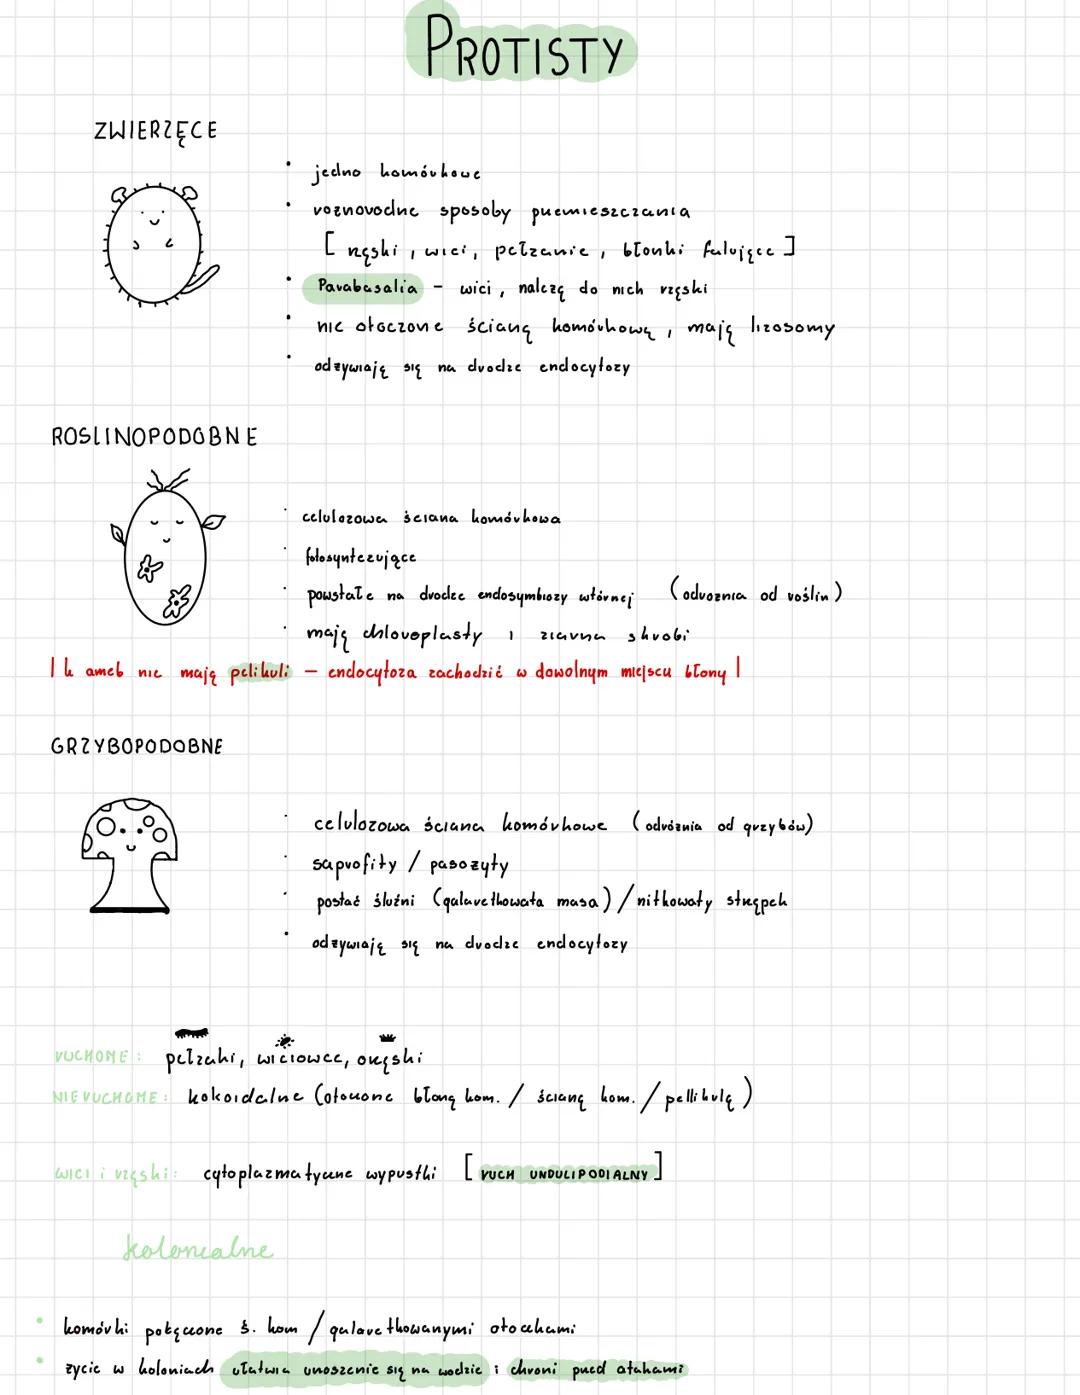 PROTISTY
ZWIERZĘCE
jedno komórkowe
roznorodne sposoby przemieszczania
[ rzęski, wici, pełzanie, błonki falujące ]
Parabasalia – wici, należą do nich rzęski
nie otoczone ścianą komórkową, mają lizosomy
odżywiają się na drodze endocytozy
ROSLINOPODOBNE
celulozowa ściana komórkowa
fotosyntezujące
powstałe na drodze endosymbiozy wtórnej (odroznia od roślin)
mają chloroplasty i ziarna skrobi
! U ameb nie mają pelikuli – endocytoza zachodzić w dowolnym miejscu błony !
GRZYBOPODOBNE
celulozowa ściana komórkowe (odróżnia od grzybów)
saprofity / pasozyty
postać śluźni (galaretkowata masa) / nitkowaty strzępek
odżywiają się na drodze endocytozy
RUCHOME: pełzaki, wiciowce, orzęski
NIERUCHOME: kokoidalne (otoczone błoną kom. / ścianą kom. / pellikulą)
WICI i rzęski: cytoplazmatyczne wypustki [RUCH UNDULIPODIALNY]
kolonialne
komórki połączone ś. kom / galaretkowanymi otoczkami
życie w koloniach ułatwia unoszenie się na wodzie i chroni przed atakami